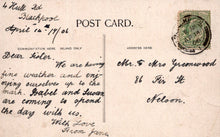 4 Hull Rd
Blackpool
April 14th 19/06
POST CARD.
COMMUNICATION HERE INLAND ONLY
Dear Sister.
We are having
fine weather and enj-
oying ourselves up to the
mark. Isabel and Susan
are coming to spend
the day with us.
With Love
From Jane
Mr & Mrs Greenwood
86 Fir St
Nelson.